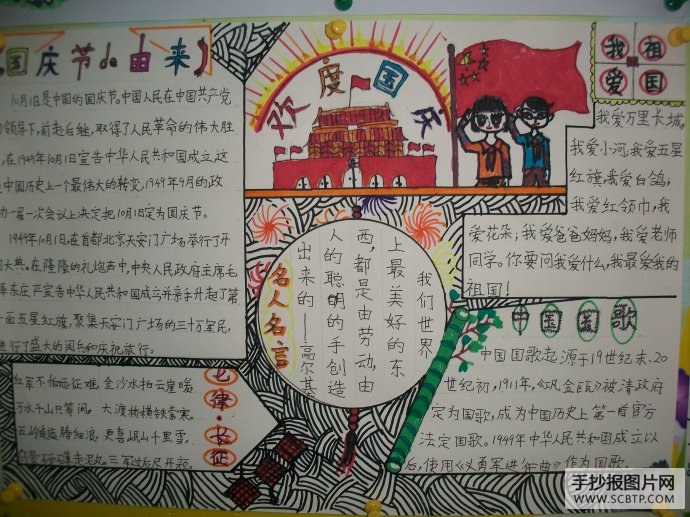 国庆节do由来
10月1日是中国的国庆节。中国人民在中国共产党
领导下,前赴后继,取得了人民革命的伟大胜
,在1949年10月1日宣告中华人民共和国成立,这
中国历史上一个最伟大的转变,1949年9月的政
一届一次会议上决定把10月1日定为国庆节。
1949年10月1日,在首都北京天安门广场举行了开
大典。在隆隆的礼炮声中,中央人民政府主席毛
泽东庄严宣告中华人民共和国成立并亲手升起了第
一面五星红旗,聚集天安门广场的三十万军民,
进行了盛大的阅兵和庆祝旅行。
欢度国庆
我爱祖国
我爱万里长城,
我爱小河,我爱五星
红旗,我爱白鸽;
我爱红领巾,我
爱花朵,我爱爸爸妈妈,我爱老师
同学。你要问我爱什么,我最爱我的
祖国!
名人名言
我们世界
上最美好的东
西,都是由劳动,由
人的聪明的手创造
出来的——高尔基
七律·长征
红军不怕远征难,金沙水拍云崖暖,
万水千山只等闲。大渡桥横铁索寒。
五岭逶迤腾细浪,更喜岷山千里雪,
乌蒙磅礴走泥丸。三军过后尽开颜。
中国国歌
中国国歌起源于19世纪末、20
世纪初,1911年,《巩金瓯》被清政府
定为国歌,成为中国历史上第一首官方
法定国歌。1949年中华人民共和国成立以
后,使用《义勇军进行曲》作为国歌。
手抄报图片网
WWW.SCBTP.COM